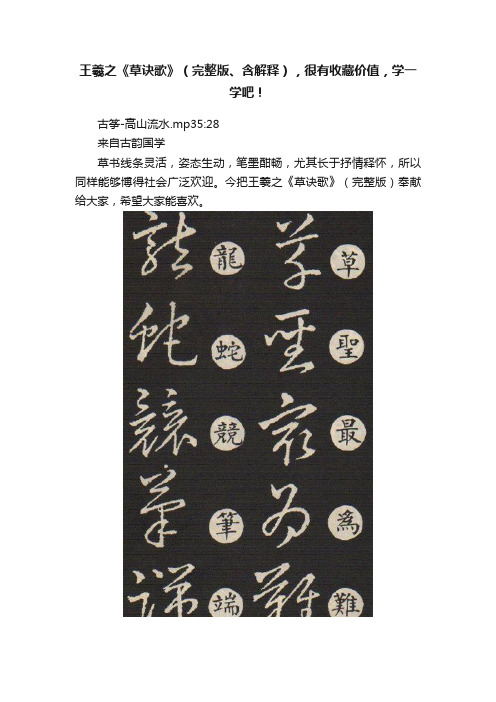 王羲之《草诀歌》（完整版、含解释），很有收藏价值，学一
学吧！
古筝-高山流水.mp35:28
来自古韵国学
草书线条灵活，姿态生动，笔墨酣畅，尤其长于抒情释怀，所以
同样能够博得社会广泛欢迎。今把王羲之《草诀歌》（完整版）奉献
给大家，希望大家能喜欢。
草聖最為難
龍蛇競筆端